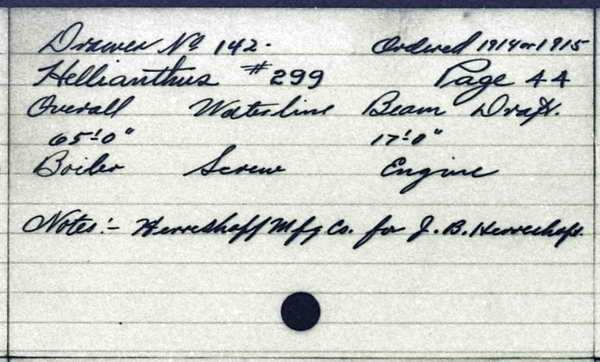 Drawer No 142. Ordered 1914 or 1915
Hellianthus #299 Page 44
Overall Waterline Beam Draft.
65'-0" 17'-0"
Boiler Screw Engine
Notes:- Herreshoff Mfg Co. for J. B. Herreshoff.